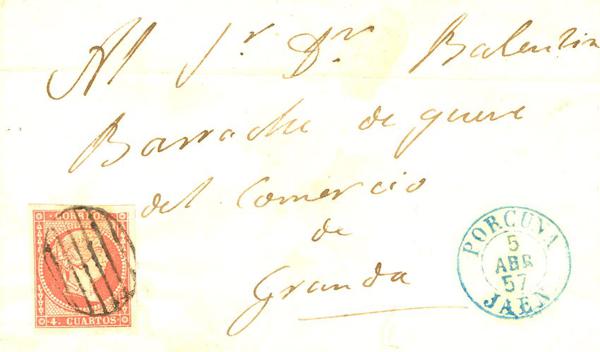 Al Sr. Dn. Balentin
Barrache de
del Comercio
de
Granda
CORREOS
4. CUARTOS
PORCUNA
5
ABR
57
JAEN